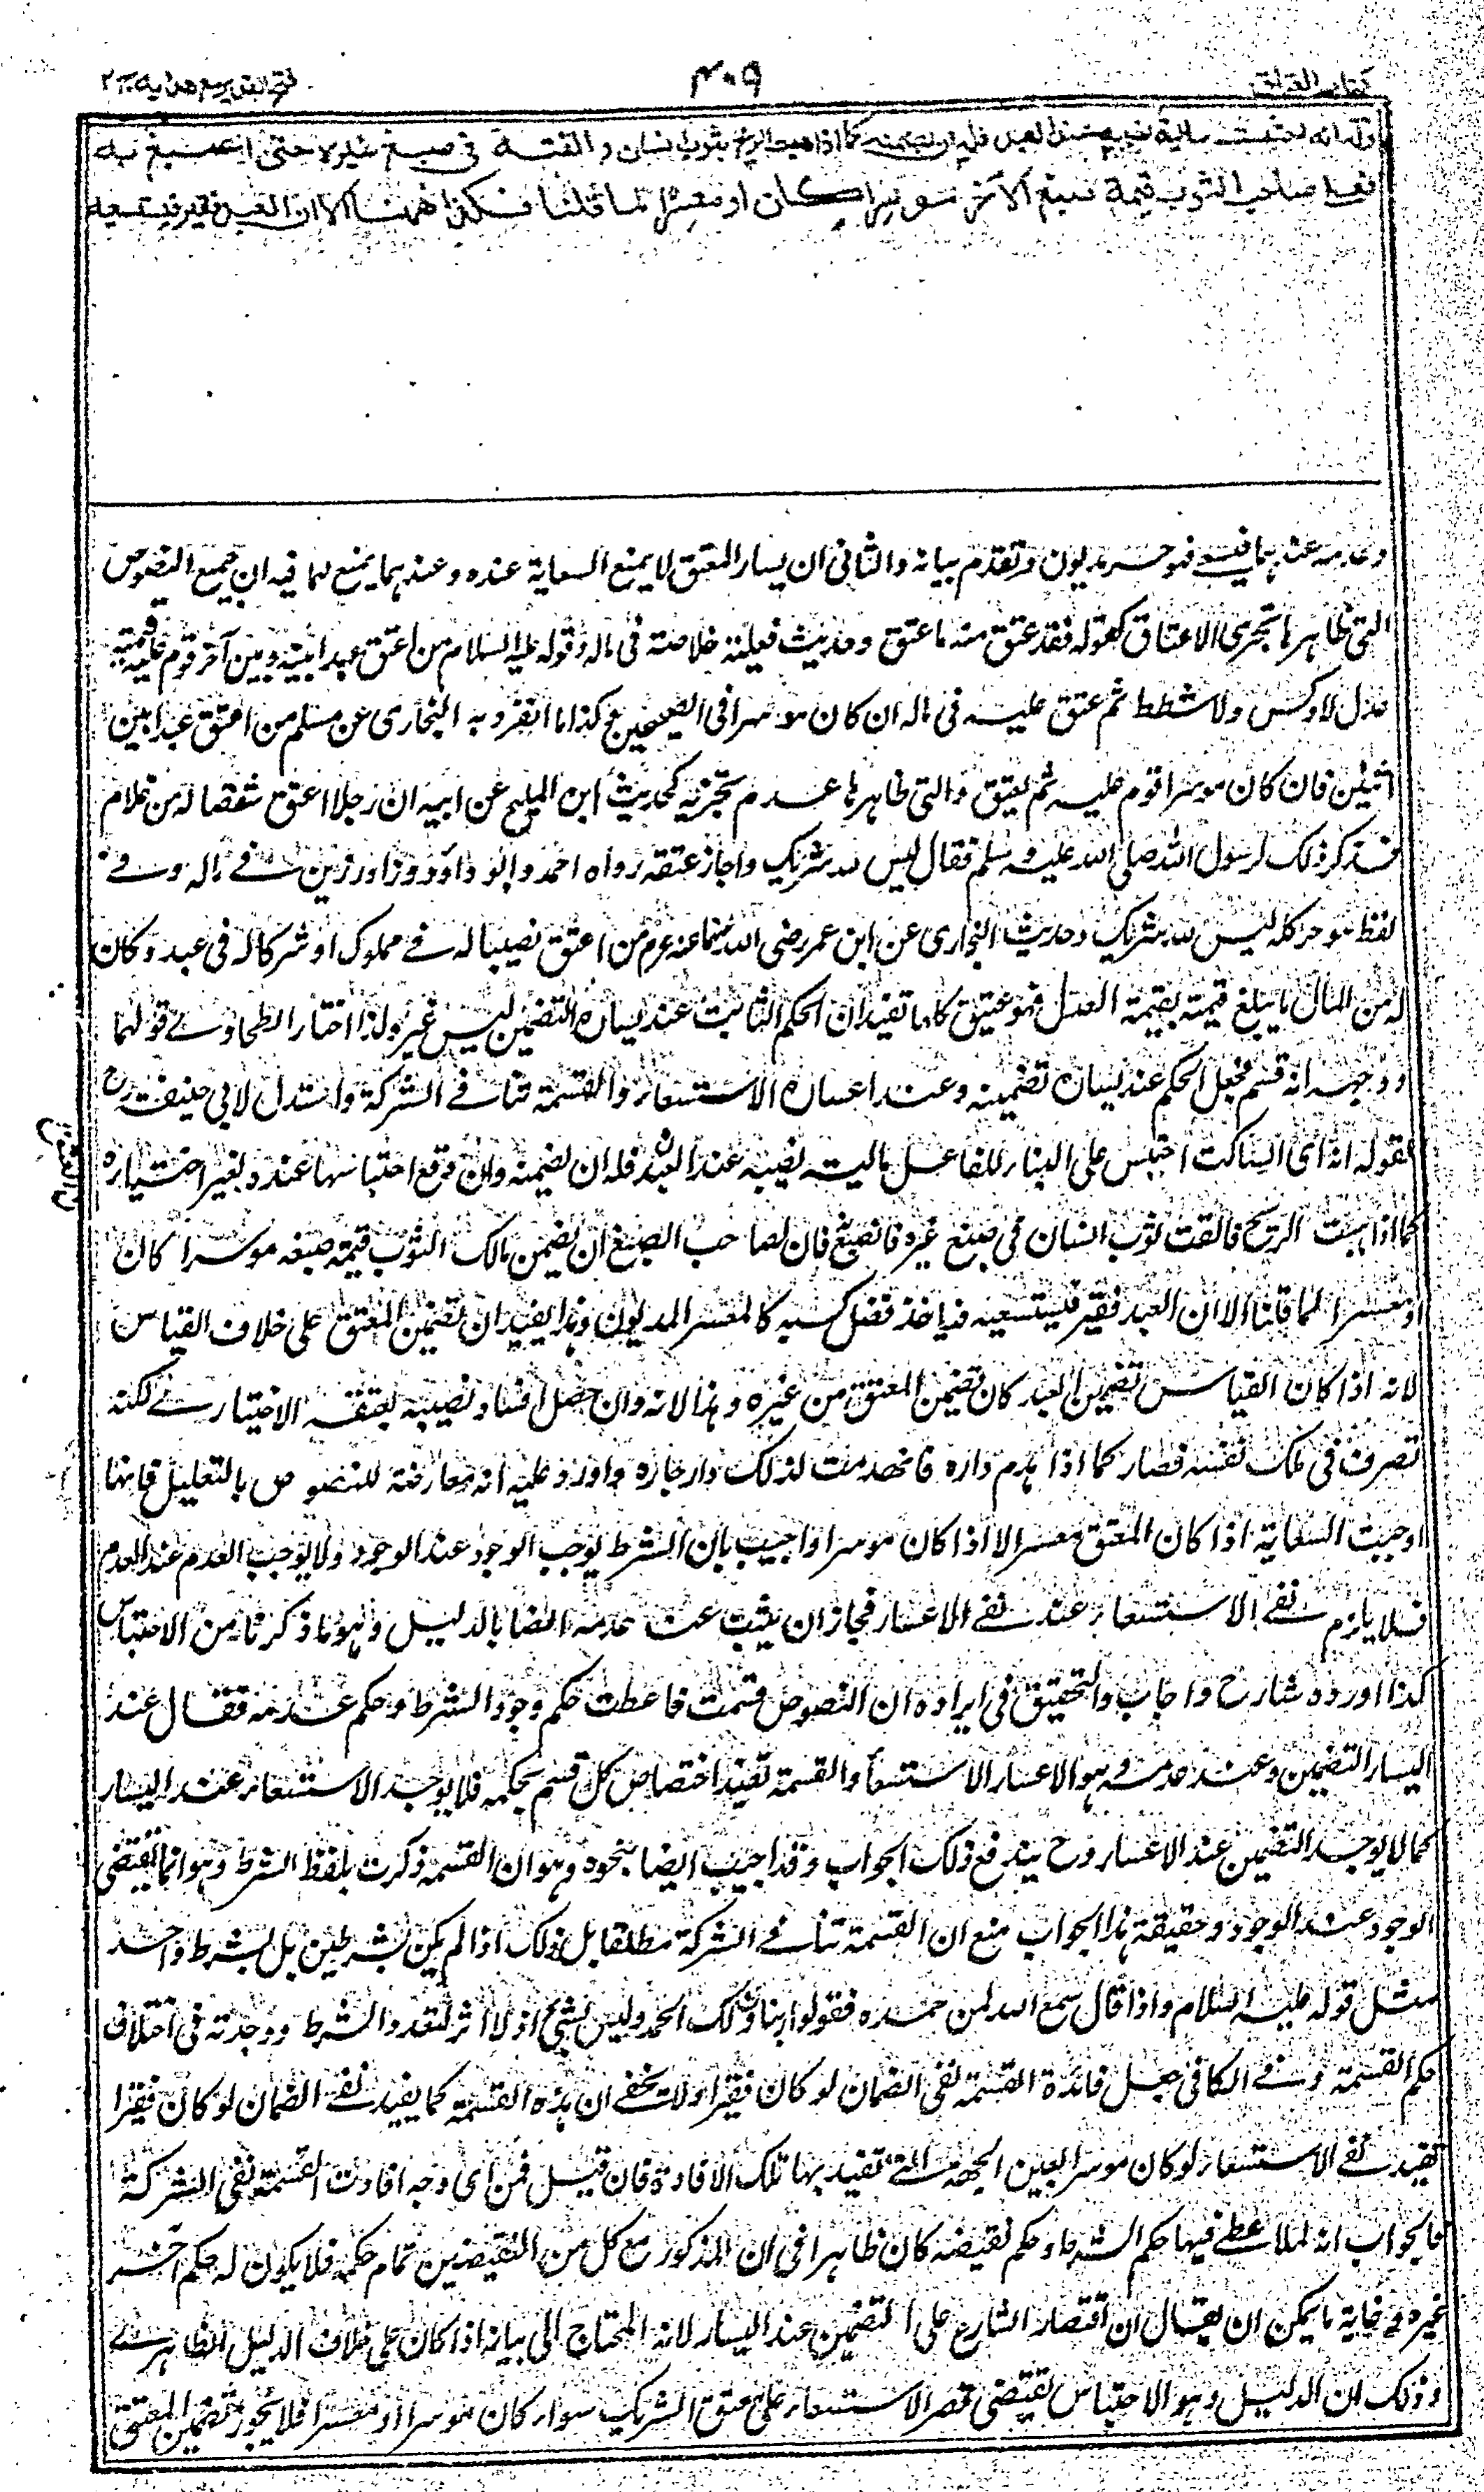 كتاب العتاق
٤٠٩
فتح القدير مع هدايه ج ٢
وله انه احتبست مالية نصيبه عند العبد فله ان يضمنه كما اذا هبت الريح بثوب انسان والقته في صبغ غيره حتى انصبغ به
فعلى صاحب الثوب قيمة صبغ الآخر موسرا كان او معسرا لما قلنا فكذا ههنا الا ان العبد فقير فيستسعيه
وعدمه عندهما فيسعى فهو حر مديون وتقدم بيانه والثاني ان يسار المعتق لا يمنع السعاية عنده وعندهما يمنع لما فيه ان جميع النصوص
التي ظاهرها تجزى الاعتاق كقوله فقد عتق منه ما عتق وحديث فعليه خلاصه في ماله وقوله عليه السلام من اعتق عبدا بينه وبين آخر قوم عليه قيمة
عدل لا وكس ولا شطط ثم عتق عليه في ماله ان كان موسرا في الصحيحين وكذا ما انفرد به البخاري عن مسلم من اعتق عبدا بين
اثنين فان كان موسرا قوم عليه ثم يعتق والتي ظاهرها عدم تجزيه كحديث ابن المليح عن ابيه ان رجلا اعتق شقصا له من غلام
فذكر ذلك لرسول الله صلى الله عليه وسلم فقال ليس لله شريك واجاز عتقه رواه احمد وابو داؤد وزاد رزين في ماله وفي
لفظ هو حر كله ليس لله شريك وحديث البخاري عن ابن عمر رضي الله عنهما عنه عم من اعتق نصيبا له في مملوك او شركا له في عبد وكان
له من المال ما يبلغ قيمته بقيمة العدل فهو عتيق كلها تفيد ان الحكم الثابت عند يساره التضمين ليس غير ولذا اختار الطحاوي قولهما
ووجهه انه قسم فجعل الحكم عند يساره تضمينه وعند اعساره الاستسعاء والقسمة تنافي الشركة واستدل لابي حنيفة رح
بقوله انه اى الساكت احتبس على البناء للفاعل مالية نصيبه عند العبد فله ان يضمنه وان وقع احتباسها عنده بغير اختياره
كما اذا هبت الريح فالقت ثوب انسان في صبغ غيره فانصبغ فان لصاحب الصبغ ان يضمن مالك الثوب قيمة صبغه موسرا كان
او معسرا لما قلنا الا ان العبد فقير فيستسعيه فياخذ فضل كسبه كالمعسر المديون وهذا يفيد ان تضمين المعتق على خلاف القياس
لانه اذا كان القياس تضمين العبد كان تضمين المعتق من غيره وهذا لانه وان حصل افساد نصيبه بعتقه الاختياري لكنه
تصرف في ملك نفسه فصار كما اذا هدم داره فانهدمت لذلك دار جاره واورد عليه انه معارضة للنصوص بالتعليل فانها
اوجبت السعاية اذا كان المعتق معسرا لا اذا كان موسرا واجيب بان الشرط يوجب الوجود عند الوجود ولا يوجب العدم عند العدم
فلا يلزم نفي الاستسعاء عند نفي الاعسار فجاز ان يثبت عند عدمه ايضا بالدليل وهو ما ذكرنا من الاحتباس
كذا اورده شارح واجاب والتحقيق في ايراده ان النصوص قسمت فاعطت حكم وجود الشرط وحكم عدمه فقال عند
اليسار التضمين وعند عدمه وهو الاعسار الاستسعاء والقسمة تفيد اختصاص كل قسم بحكمه فلا يوجد الاستسعاء عند اليسار
كما لا يوجد التضمين عند الاعسار وح يندفع ذلك الجواب وقد اجيب ايضا بنحوه وهو ان القسمة ذكرت بلفظ الشرط وهو انما يقتضي
الوجود عند الوجود وحقيقة هذا الجواب منع ان القسمة تنافي الشركة مطلقا بل ذلك اذا لم يكن بشرطين بل بشرط واحد
مثل قوله عليه السلام واذا قال سمع الله لمن حمده فقولوا ربنا ولك الحمد وليس بشيء اذ لا اثر لتعدد الشرط ووحدته في اختلاف
حكم القسمة وفي الكافي جعل فائدة القسمة نفي الضمان لو كان فقيرا ولا يخفى ان هذه القسمة كما يفيد نفي الضمان لو كان فقيرا
تفيد نفي الاستسعاء لو كان موسرا بعين الجهة التي تفيد بها تلك الافادة فان قيل فمن اى وجه افادت القسمة نفي الشركة
فالجواب انه لما اعطى فيها حكم الشرط وحكم نقيضه كان ظاهرا في ان المذكور مع كل من النقيضين تمام حكمه فلا يكون له حكم آخر
غيره وغاية ما يمكن ان يقال ان اقتصار الشارع على التضمين عند اليسار لانه المحتاج الى بيانه اذا كان على خلاف الدليل الظاهر
وذلك ان الدليل وهو الاحتباس يقتضي قصر الاستسعاء على معتق الشريك سواء كان موسرا او معسرا فلا يجوز تضمين المعتق